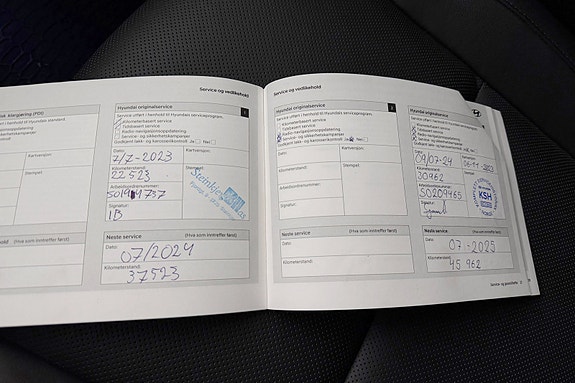 Service og vedlikehold
Hyundai originalservice
Service utført i henhold til Hyundais serviceprogram.
Kilometerbasert service
Tidsbasert service
Radio-navigasjonsoppdatering
Service- og sikkerhetskampanjer
Godkjent lakk- og karosserikontroll Ja Nei
Dato: Kartversjon:
7/7-2023
Kilometerstand: Stempel:
22 523
Arbeidsordrenummer:
Steinkjer
Signatur:
IB
Neste service (Hva som inntreffer først)
Dato:
07/2024
Kilometerstand:
37523
Service og vedlikehold
Hyundai originalservice
Service utført i henhold til Hyundais serviceprogram.
Kilometerbasert service
Tidsbasert service
Radio-navigasjonsoppdatering
Service- og sikkerhetskampanjer
Godkjent lakk- og karosserikontroll Ja Nei
Dato: Kartversjon:
Kilometerstand: Stempel:
Arbeidsordrenummer:
Signatur:
Neste service (Hva som inntreffer først)
Dato:
Kilometerstand:
Hyundai originalservice
Service utført i henhold til Hyundais serviceprogram.
Kilometerbasert service
Tidsbasert service
Radio-navigasjonsoppdatering
Service- og sikkerhetskampanjer
Godkjent lakk- og karosserikontroll Ja Nei
Dato: Kartversjon:
09/07-24
Kilometerstand: Stempel:
30962
Arbeidsordrenummer:
SO209465
KSH
Signatur:
Neste service (Hva som inntreffer først)
Dato:
07-2025
Kilometerstand:
45 962